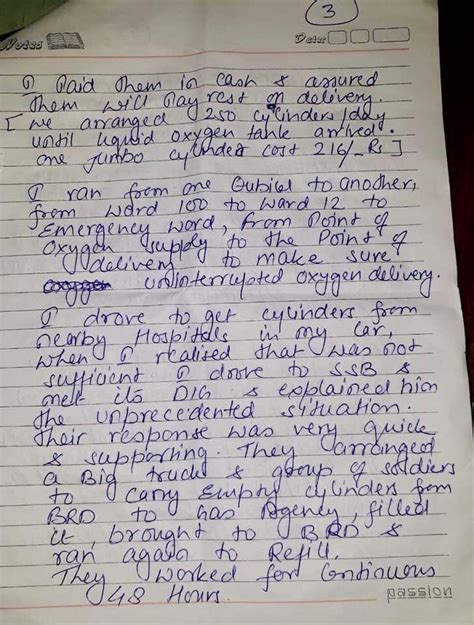 3
Notes
Date:
I Paid them in cash & assured
them will Pay rest on delivery.
[ we arranged 250 cylinders/day
until liquid oxygen tank arrived.
one Jumbo cylinder cost 216/- Rs ]
I ran from one Cubical to another,
from ward 100 to ward 12 to
Emergency word, from Point of
oxygen supply to the Point of
delivery to make sure
uninterrupted oxygen delivery.
I drove to get cylinders from
nearby Hospitals in my car,
when I realised that was not
sufficient I drove to SSB &
met its DIG & explained him
the unprecedented situation.
their response was very quick
& supporting. They arranged
a Big truck & group of soldiers
to carry Empty cylinders from
BRD to Gas Agency, filled
it, brought to BRD &
ran again to Refill.
They worked for Continuous
48 Hours.
passion